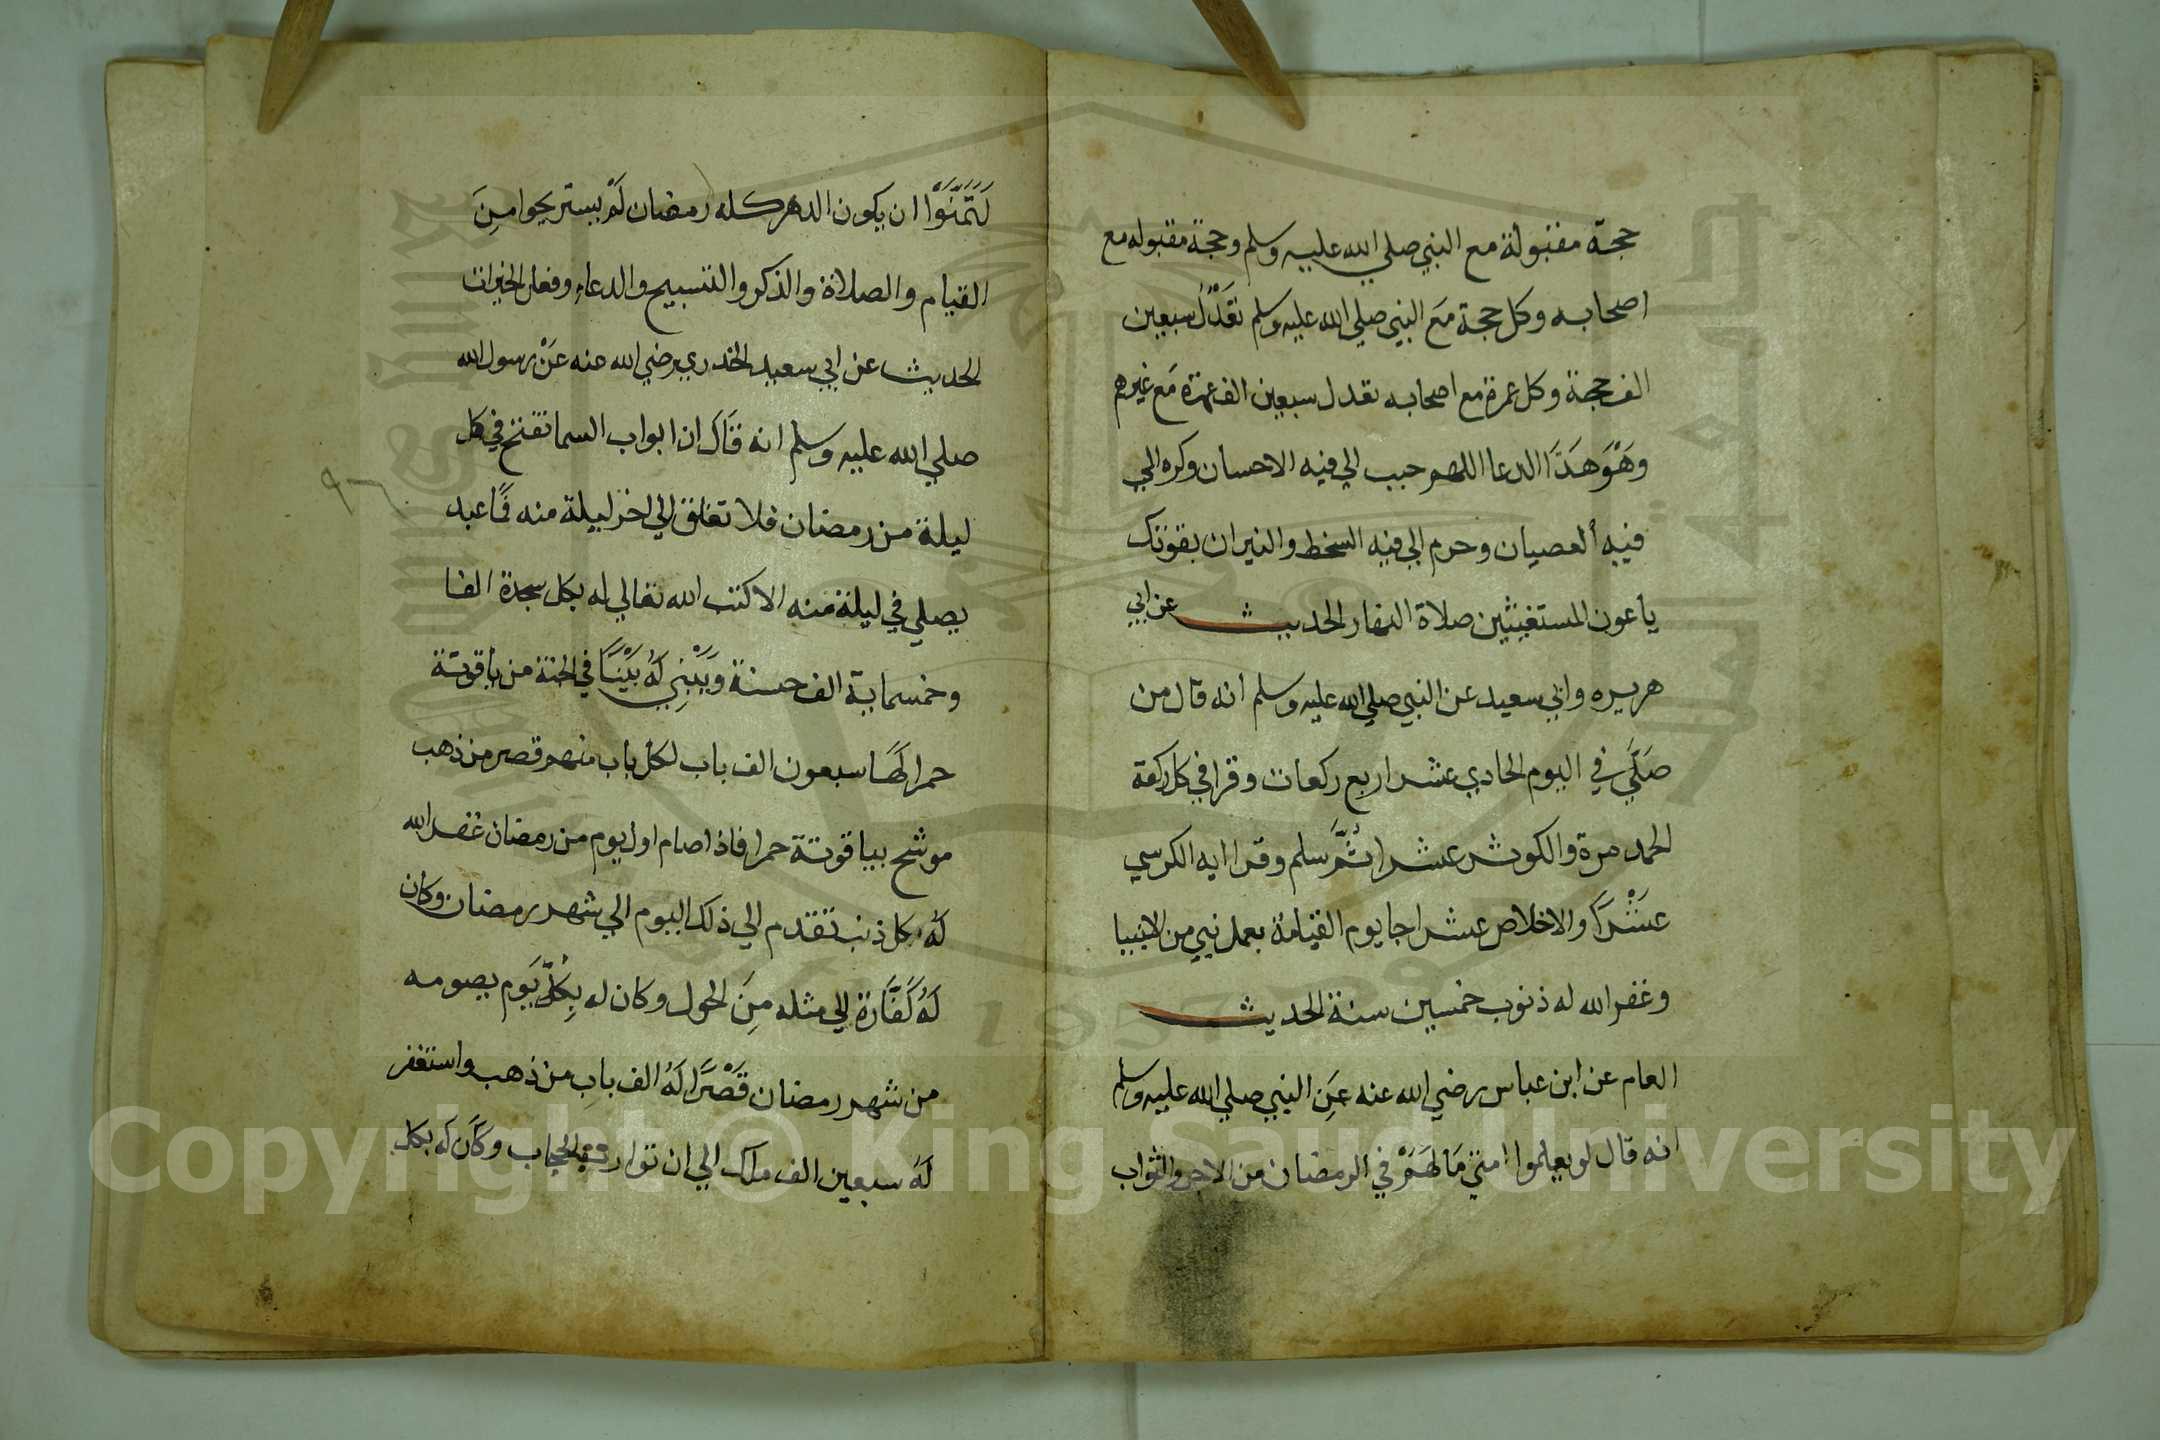 حجة مقبولة مع النبي صلي الله عليه وسلم وحجة مقبوله مع
اصحابه وكل حجة مَع النبي صلي الله عليه وسلم تعَدْلُ سبعين
الف حجة وكل عمرة مع اصحابه تعدل سبعين الف عمرة مَع غيرهم
وهَوَ هَذَا الدعا اللهم حبب الي فيه الاحسان وكره الي
فيه العصيان وحرم الي فيه السخط والنيران بقوتك
يا عون المستغيثين صلاة النهار الحديث عن ابي
هريره وابي سعيد عن النبي صلي الله عليه وسلم انه قال من
صَلَّي في اليوم الحادي عشر اربع ركعات وقرا في كل ركعة
الحمد مرة والكوثر عشرا ثُمَّ سلم وقرا ايه الكرسي
عَشْرَا والاخلاص عشرا جا يوم القيامة بعمل نبي من الانبيا
وغفر الله له ذنوب خمسين سنة الحديث
العام عن ابن عباس رضي الله عنه عَنِ النبي صلي الله عليه وسلم
انه قال لو يعلموا امتي مَا لهَمْ في الرمضان من الاجر والثواب
لَتَمَنَّوْا ان يكون الدهر كله رمضان لَمْ يستريحوا مِنَ
القيام والصلاة والذكر والتسبيح والدعاء وفعل الخيرات
الحديث عن ابي سعيد الخدري رضي الله عنه عَنْ رسول الله
صلي الله عليه وسلم انه قَالَ ان ابواب السما تفتح في كل
ليلة من رمضان فلا تغلق الي اخر ليلة منه فَما عبد
يصلي في ليلة منه الا كتب الله تعالي له بكل سجدة الفا
وخمسماية الف حسنة وَيَبْنِي لَهُ بَيْتًا في الجنة من ياقوتة
حمرا لَهَا سبعون الف باب لكل باب منهم قصر من ذهب
موشح بياقوتة حمرا فاذا صام اول يوم من رمضان غفر الله
لَهُ كل ذنب تقدم الي ذلك اليوم الي شهر رمضان وكان
لَهُ كَفَّارَة الي مثله مِنَ الحول وكان له بِكُلِّ يَوم يصومه
من شهر رمضان قَصْرًا لَهُ الف بابِ من ذهب واستغفر
لَهُ سبعين الف ملك الي ان توارت في الحجاب وكَان لَه بكل